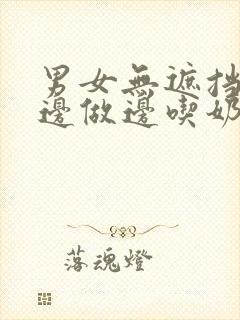 男女無遮挡
邊做邊喫奶
落魂燈